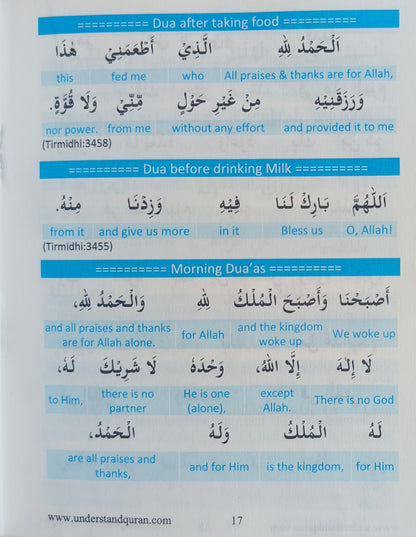 ========== Dua after taking food ==========
اَلْحَمْدُ لِلّٰهِ الَّذِيْ أَطْعَمَنِيْ هٰذَا
All praises & thanks are for Allah, who fed me this
وَرَزَقَنِيْهِ مِنْ غَيْرِ حَوْلٍ مِّنِّيْ وَلَا قُوَّةٍ.
and provided it to me without any effort from me nor power.
(Tirmidhi:3458)
========== Dua before drinking Milk ==========
اَللّٰهُمَّ بَارِكْ لَنَا فِيْهِ وَزِدْنَا مِنْهُ.
O, Allah! Bless us in it and give us more from it
(Tirmidhi:3455)
========== Morning Dua'as ==========
أَصْبَحْنَا وَأَصْبَحَ الْمُلْكُ لِلّٰهِ وَالْحَمْدُ لِلّٰهِ،
We woke up and the kingdom woke up for Allah and all praises and thanks are for Allah alone.
لَا إِلٰهَ إِلَّا اللهُ، وَحْدَهُ لَا شَرِيْكَ لَهُ،
There is no God except Allah. He is one (alone), there is no partner to Him,
لَهُ الْمُلْكُ وَلَهُ الْحَمْدُ،
for Him is the kingdom, and for Him are all praises and thanks,
www.understandquran.com 17